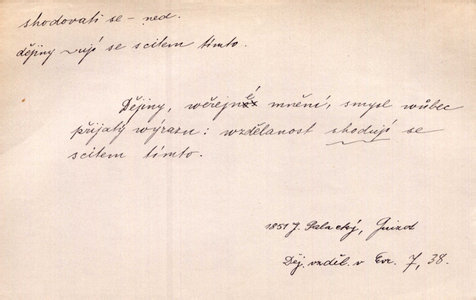 shodovati se – ned.
dějiny ~ují se scitem tímto.
Dějiny, weřejné mnění, smysl wůbec
přijatý wýrazu: wzdělanost shodují se
scitem tímto.
1851 J. Palacký, Guizot
Děj. vzděl. v Evr. 7, 38.